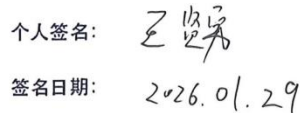 个人签名: 王贤
签名日期: 2026.01.29